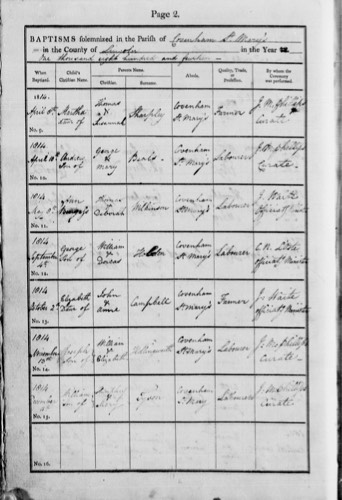 Page 2.
BAPTISMS solemnized in the Parish of Covenham St Mary's
in the County of Lincoln in the Year
One thousand eight hundred and fourteen
When Baptized. Child's Christian Name. Parents Name. Christian. Surname. Abode. Quality, Trade, or Profession. By whom the Ceremony was performed.
1814. April Martha Daur of Thomas & Sharpley Covenham St Mary's Farmer J. M. Phillips Curate
No. 9.
1814 April 10th Son of George & Mary Covenham St Mary's Labourer J. M. Phillips Curate
No. 10.
1814 Ann Thomas Deborah Wilkinson Covenham St Mary's Labourer J. Waite Officiating
No. 11.
1814 September 4th George Son of William & Dorcas Covenham St Mary's Labourer Officiatg Minister
No. 12.
1814 October 2d Elizabeth Daur of John & Anne Campbell Covenham St Mary's Farmer J. Waite Officiatg Minister
No. 13.
1814 November Joseph Son of William & Elizabeth Covenham St Mary's Labourer J. M. Phillips Curate
No. 14.
1814 William Son of & Tyson Covenham St Mary Labourer J. M. Phillips Curate
No. 15.
No. 16.